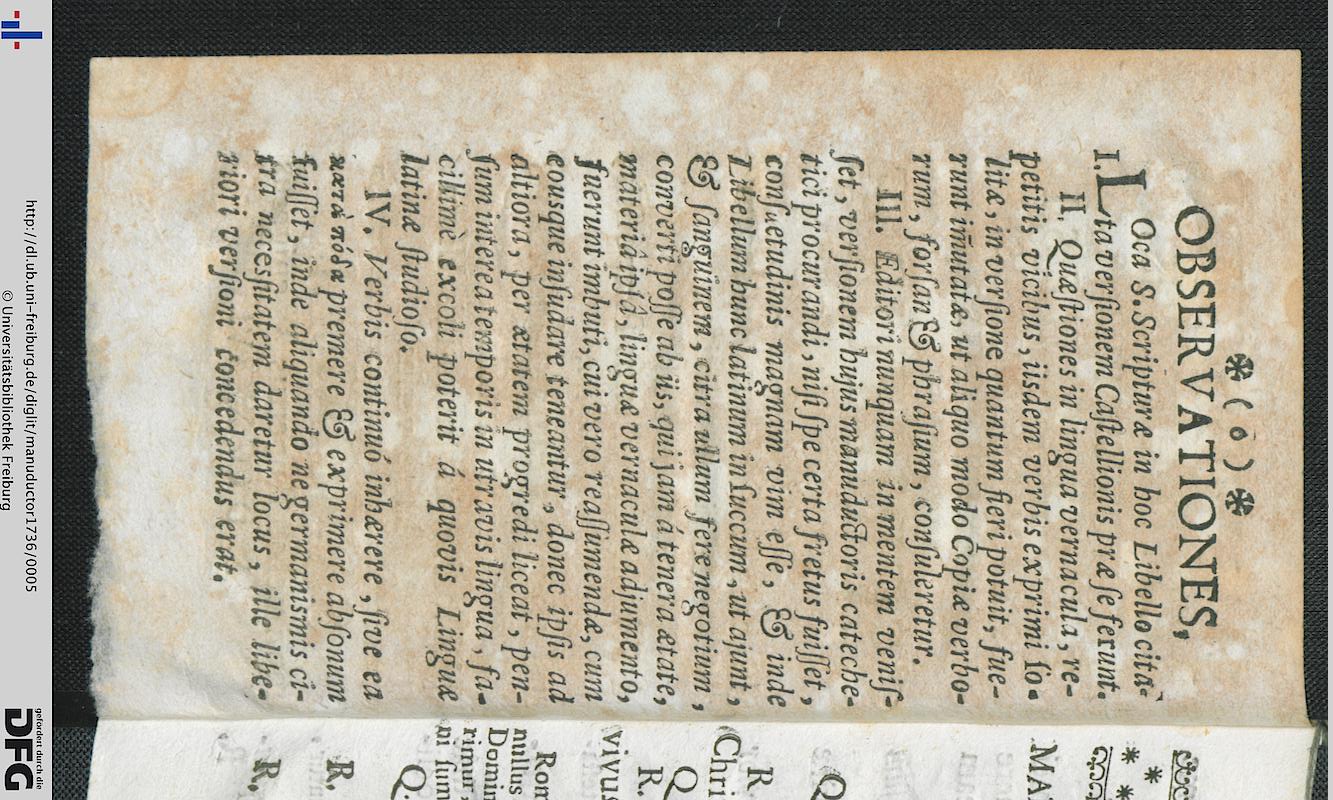 ❃ ( o ) ❃
OBSERVATIONES,
I. Loca S. Scripturæ in hoc Libello citi-
ta versionem Castellionis præ se ferunt.
II. Quæstiones in lingua vernacula, re-
petitis vicibus, iisdem verbis exprimi so-
litæ, in versione quantum fieri potuit, fue-
runt im̃utatæ, ut aliquo modo Copiæ verbo-
rum, forsan & phrasium, consuleretur.
III. Editori nunquam in mentem venis-
set, versionem hujus manuductoris cateche-
tici procurandi, nisi spe certa fretus fuisset,
consuetudinis magnam vim esse, & inde
Libellum hunc latinum in succum, ut ajunt,
& sanguinem, citra ullum fere negotium,
converti posse ab iis, qui jam á tenera ætate,
materiâ ipsâ, linguæ vernaculæ adjumento,
fuerunt imbuti, cui vero reassumendæ, cum
eousque insudare teneantur, donec ipsis ad
altiora, per ætatem progredi liceat, pen-
sum interea temporis in utravis lingua, fa-
cillimè excoli poterit á quovis Linguæ
latinæ studioso.
IV. Verbis continuó inhærere, sive ea
κατὰ πόδα premere & exprimere absonum
fuisset, inde aliquando ne germanismis ci-
tra necessitatem daretur locus, ille libe-
riori versioni concedendus erat.
MA
Q
R
Chri
Q
R.
vivus
Rom
nullus
Domin
rimur,
ni sum
Q.
R.
R.
http://dl.ub.uni-freiburg.de/diglit/manuductor1736/0005
© Universitätsbibliothek Freiburg
gefördert durch die
DFG